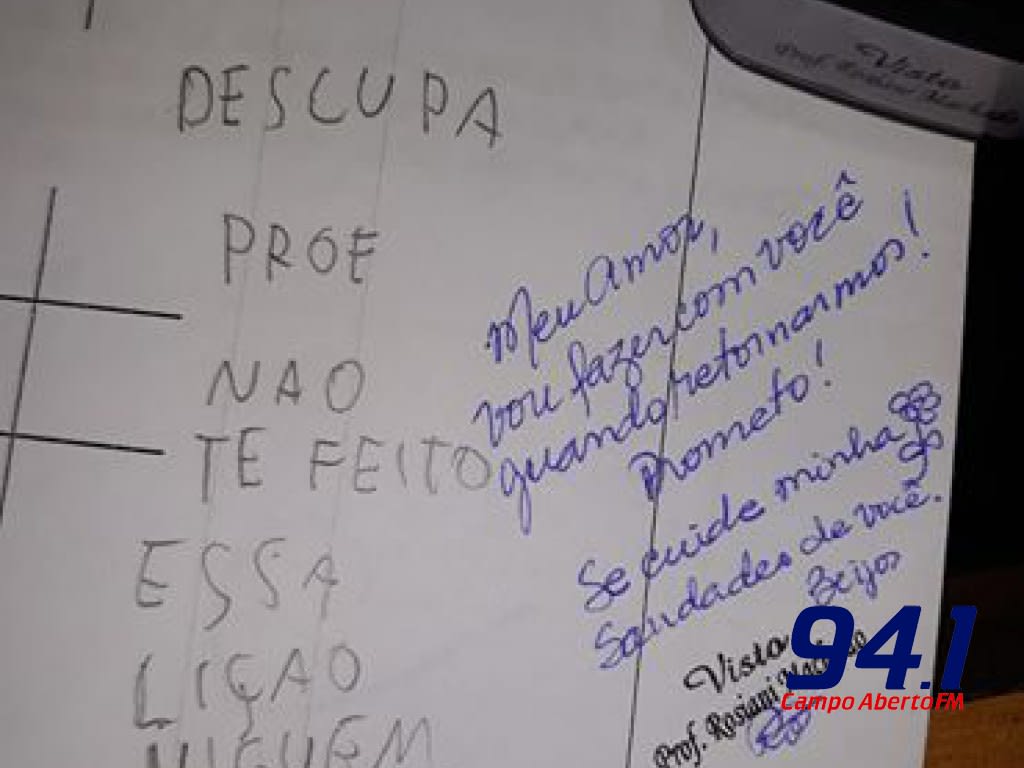 DESCUPA
PROE
NAO
TE FEITO
ESSA
LIÇAO
NIGUEM
Meu Amor,
vou fazer com você
quando retornarmos!
Prometo!
Se cuide minha
Saudades de você.
Beijos
Visto
Prof. Rosiani
94.1
Campo Aberto FM
Visto
Prof.